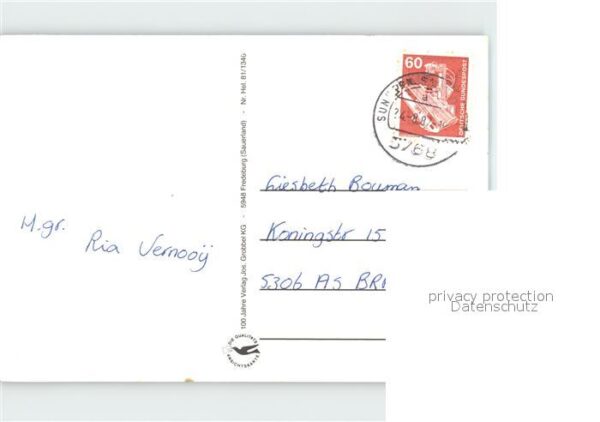 M.gr.
Ria Vernooij
100 Jahre Verlag Jos. Grobbel KG · 5948 Fredeburg (Sauerland) · Nr. Hel. 81/1346
DIE QUALITÄTS
ANSICHTSKARTE
60
DEUTSCHE BUNDESPOST
5768
Liesbeth Bouman
Koningstr 15
5306 AS
privacy protection
Datenschutz